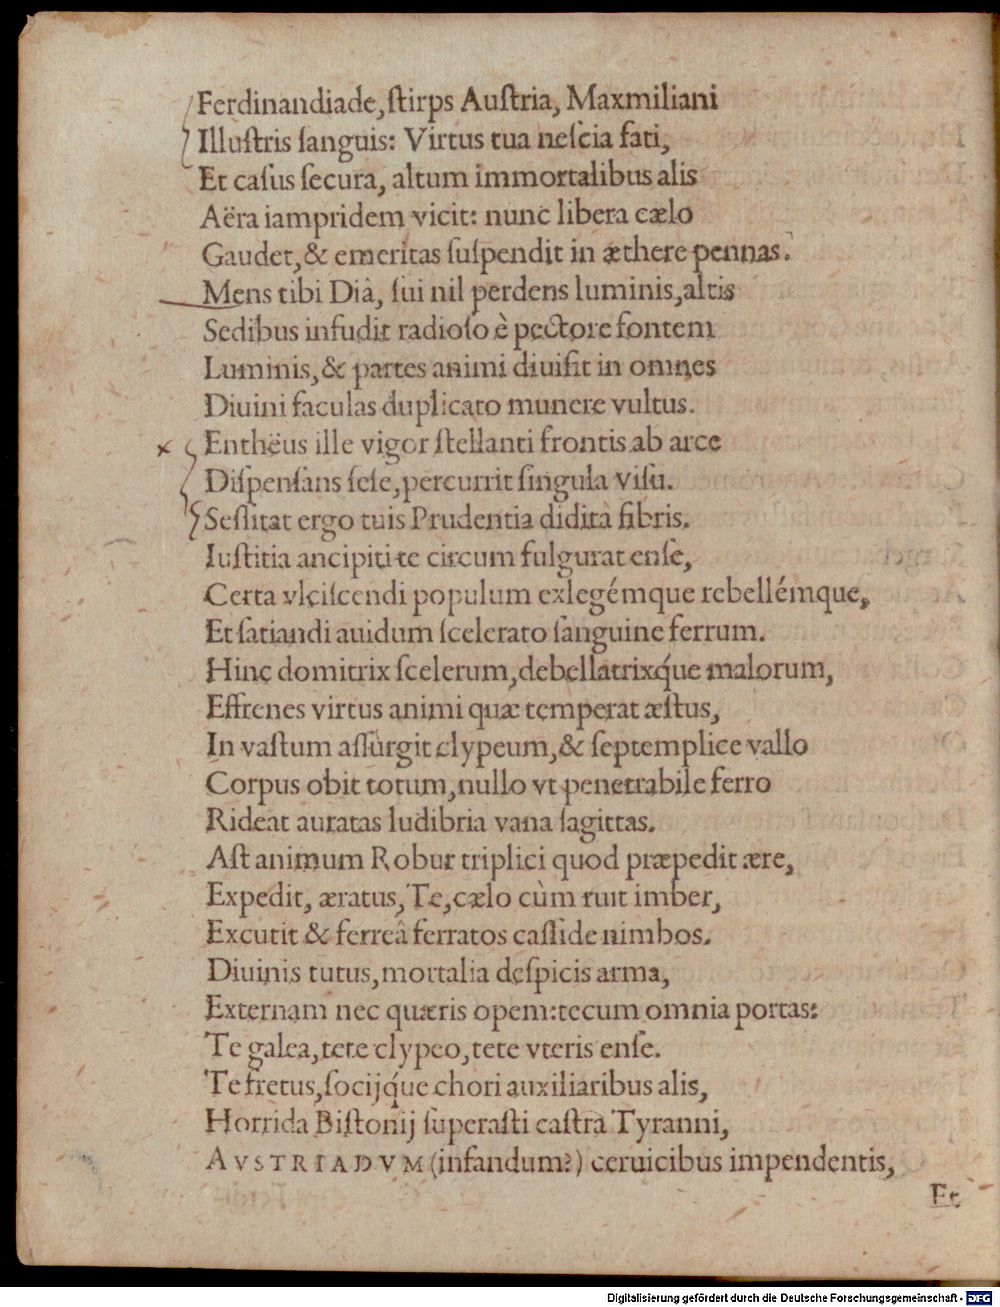 Ferdinandiade, ſtirps Auſtria, Maxmiliani
Illuſtris ſanguis: Virtus tua neſcia fati,
Et caſus ſecura, altum immortalibus alis
Aëra iampridem vicit: nunc libera cælo
Gaudet, & emeritas ſuſpendit in æthere pennas.
Mens tibi Diâ, ſui nil perdens luminis, altis
Sedibus infudit radioſo è pectore fontem
Luminis, & partes animi diuiſit in omnes
Diuini faculas duplicato munere vultus.
Enthëus ille vigor ſtellanti frontis ab arce
Diſpenſans ſeſe, percurrit ſingula viſu.
Seſſitat ergo tuis Prudentia didita fibris.
Iuſtitia ancipiti te circum fulgurat enſe,
Certa vlciſcendi populum exlegémque rebellémque,
Et ſatiandi auidum ſcelerato ſanguine ferrum.
Hinc domitrix ſcelerum, debellatrixq́ue malorum,
Effrenes virtus animi quæ temperat æſtus,
In vaſtum aſſurgit clypeum, & ſeptemplice vallo
Corpus obit totum, nullo vt penetrabile ferro
Rideat auratas ludibria vana ſagittas.
Aſt animum Robur triplici quod præpedit ære,
Expedit, æratus, Te, cælo cùm ruit imber,
Excutit & ferreâ ferratos caſſide nimbos.
Diuinis tutus, mortalia deſpicis arma,
Externam nec quæris opem: tecum omnia portas:
Te galea, tete clypeo, tete vteris enſe.
Te fretus, ſocijq́ue chori auxiliaribus alis,
Horrida Biſtonij ſuperaſti caſtra Tyranni,
AVSTRIADVM (infandum?) ceruicibus impendentis,
Et
Digitalisierung gefördert durch die Deutsche Forschungsgemeinschaft - DFG